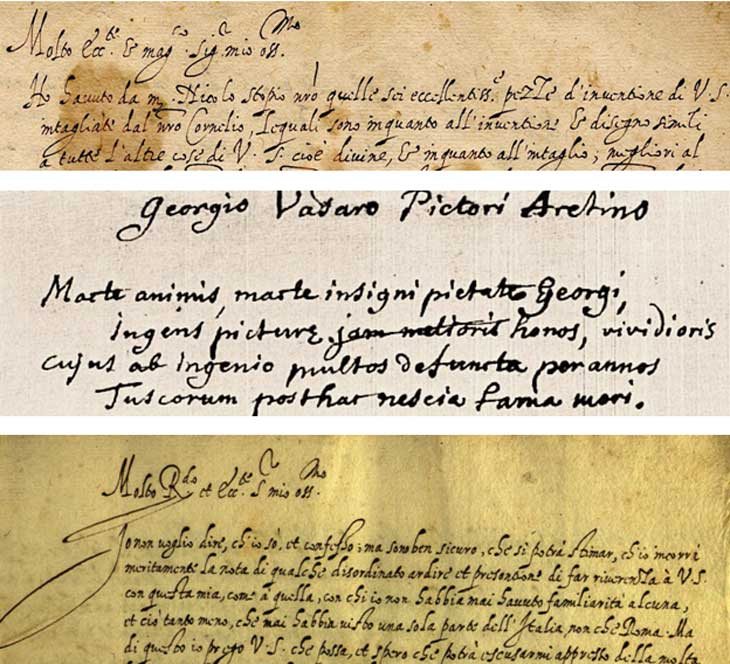 Molto Ecc.te & mag.co Sig.r mio oss.mo
Ho havuto da m. Nicolo stopio nrò quelle sei eccellentiss.e pezze d'inventione di V. S.
intagliate dal nrò Cornelio, lequali sono inquanto all'inventione & disegno simili
a tutte l'altre cose di V. S. cioè divine, & inquanto all'intaglio, megliori al
Georgio Vasaro Pictori Aretino
Macte animis, macte insigni pietate Georgi,
ingens picturę jam melioris honos, vividioris
cujus ab ingenio multos defuncta per annos
Tuscorum posthac nescia fama mori.
Molto R.do et Ecc.te S. mio oss.mo
Jo non voglio dire, ch'io so, et confesso; ma sono ben sicuro, che si potrà stimar, ch'io incorri
meritamente la nota di qualche disordinato ardire et presontione di far riverenza à V. S.
con questa mia, come à quella, con chi io non habbia mai havuto familiarità alcuna,
et ciò tanto meno, che mai habbia visto una sola parte dell'Italia non che Roma. Ma
di questo io prego V. S. che possa, et spero che potrà escusarmi appresso della molta